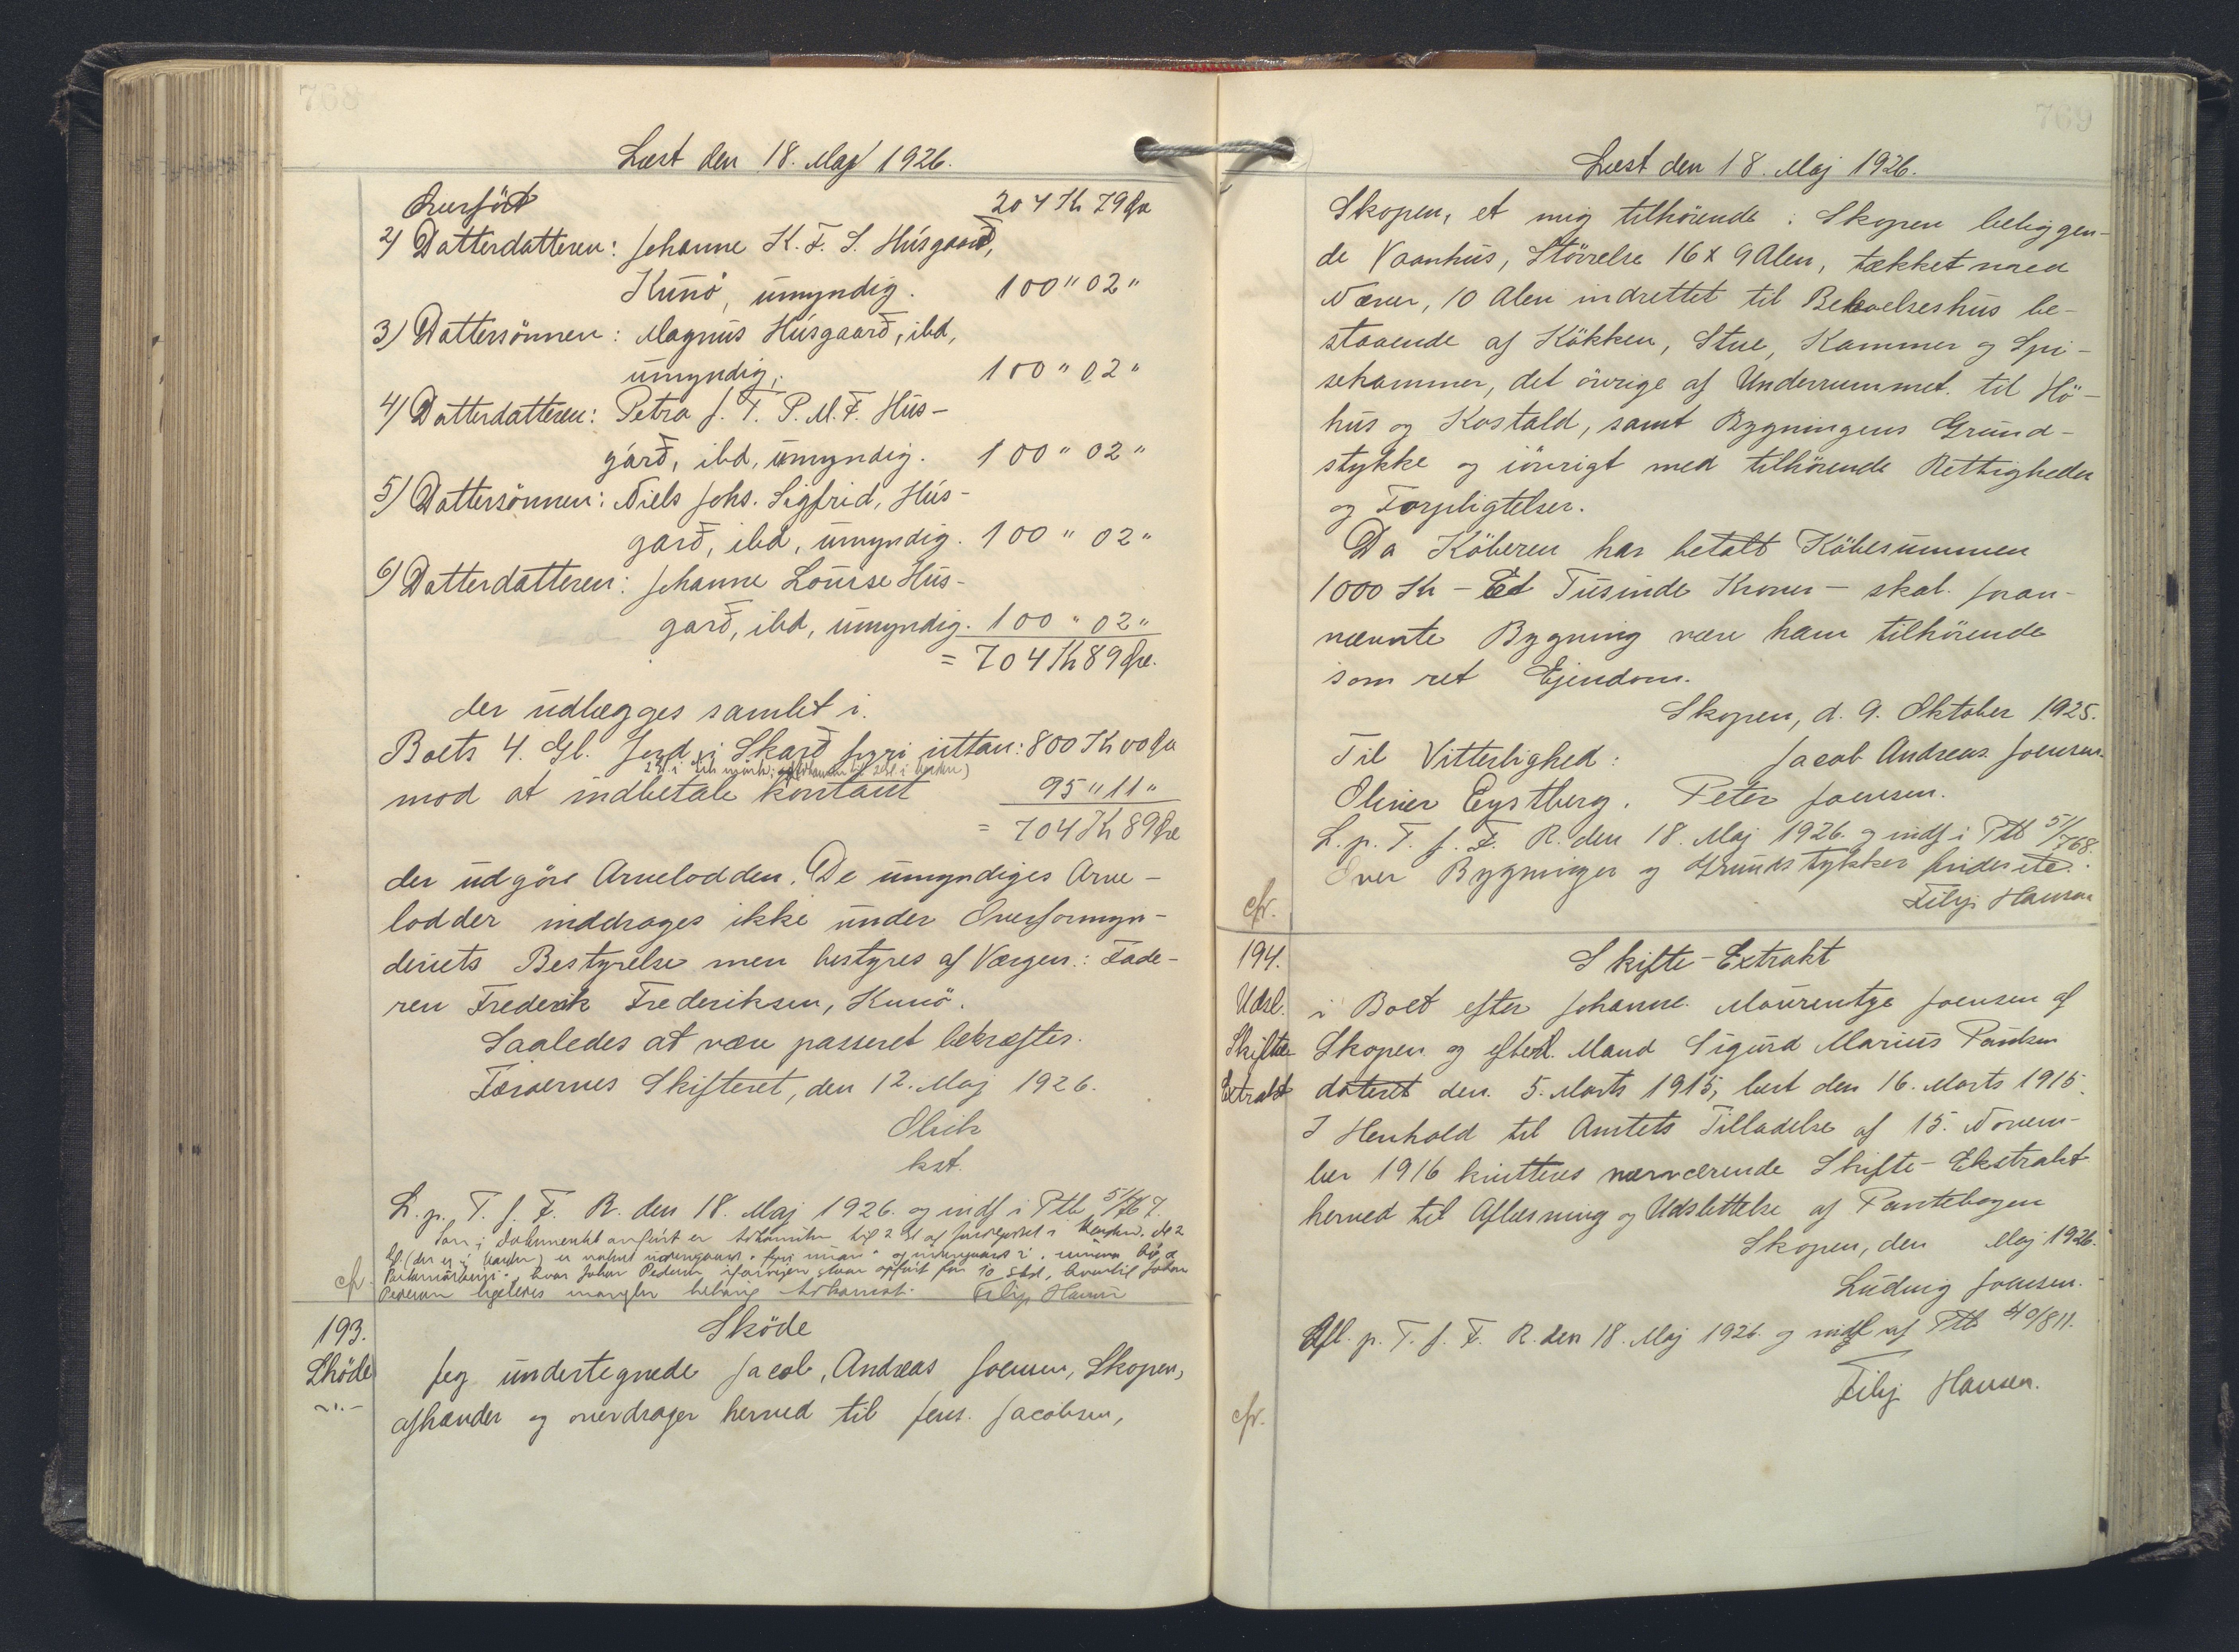 768
Læst den 18. Maj 1926.
Overført 204 Kr 79 Øre
2) Datterdatteren: Johanne K. F. S. Húsgaard,
Kunö, umyndig. 100 " 02 "
3) Dattersönnen: Magnus Húsgaarð, ibd,
umyndig, 100 " 02 "
4) Datterdatteren: Petra J. F. P. M. F. Hús-
gárð, ibd, umyndig. 100 " 02 "
5) Dattersönnen: Niels Johs. Sigfrid, Hús-
garð, ibd, umyndig. 100 " 02 "
6) Datterdatteren: Johanne Louise Hús-
garð, ibd, umyndig. 100 " 02 "
= 704 Kr 89 Øre.
der udlægges samlet i.
Boets 4. Gl. Jord i Skarð fyri uttan: 800 Kr 00 Øre
mod at indbetale kontant 95 " 11 "
= 704 Kr 89 Øre
der udgöre Arvelodden. De umyndiges Arve-
lodder inddrages ikke under Overformyn-
deriets Bestyrelse men bestyres af Værgen: Fade-
ren Frederik Frederiksen, Kunö.
Saaledes at være passeret bekræftes.
Færøernes Skifteret, den 12. Maj 1926.
Olrik
kst.
L. p. T. f. F. R. den 18. Maj 1926. og indf i Ptb 51/767.
Som i Dokumentet anført er Adkomsten til 2 Gl af
Pedersen ligeledes mangler behørig Adkomst. Filip Hansen
cfr.
193. Sköde
Sköde Jeg undertegnede Jacob, Andreas Joensen, Skopen,
afhænder og overdrager herved til Jens. Jacobsen,
769
Læst den 18. Maj 1926.
Skopen, et mig tilhörende i Skopen beliggen-
de Vaanhus, Störrelse 16 x 9 Alen, tækket med
Næver, 10 Alen indrettet til Beboelseshus be-
staaende af Kökken, Stue, Kammer og Spi-
sekammer, det övrige af Underrummet til Hö-
hus og Kostald, samt Bygningens Grund-
stykke og iövrigt med tilhörende Rettigheder
og Forpligtelser.
Da Köberen har betalt Köbesummen
1000 Kr - Et Tusinde Kroner - skal foran-
nævnte Bygning være ham tilhörende
som ret Ejendom.
Skopen, d. 9. Oktober 1925.
Til Vitterlighed: Jacob Andreas Joensen.
Oliver Eystberg. Peter Joensen.
L. p. T. f. F. R. den 18. Maj 1926. og indf i Ptb 51/768.
Over Bygninger og Grundstykker findes etc.
cfr. Filip Hansen
194. Skifte-Extrakt
Udsl. i Boet efter Johanne Maurentze Joensen af
Skifte Skopen og efterl. Mand Sigurd Marius Poulsen
Extrakt dateret den 5. Marts 1915, læst den 16. Marts 1915.
I Henhold til Amtets Tilladelse af 15. Novem-
ber 1916 kvitteres nærværende Skifte-Ekstrakt
herved til Aflæsning og Udslettelse af Pantebogen
Skopen, den Maj 1926.
Ludvig Joensen.
Afl. p. T. f. F. R. den 18. Maj 1926. og indf af Ptb 40/811.
Filip Hansen.
cfr.